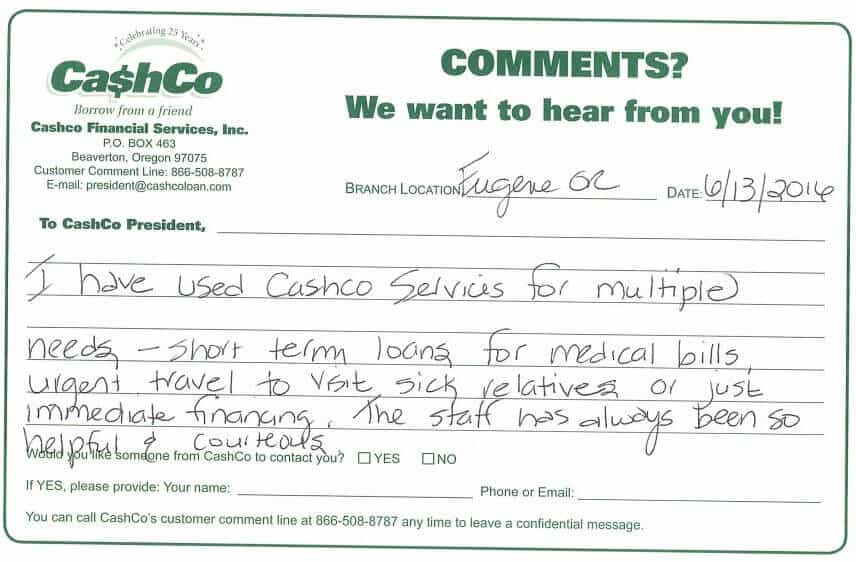 Celebrating 25 Years
Ca$hCo
Borrow from a friend
Cashco Financial Services, Inc.
P.O. BOX 463
Beaverton, Oregon 97075
Customer Comment Line: 866-508-8787
E-mail: president@cashcoloan.com
COMMENTS?
We want to hear from you!
BRANCH LOCATION Eugene OR DATE: 6/13/2016
To CashCo President,
I have used Cashco Services for multiple
needs - short term loans for medical bills,
urgent travel to visit sick relatives or just
immediate financing. The staff has always been so
helpful & courteous
Would you like someone from CashCo to contact you? YES NO
If YES, please provide: Your name: Phone or Email:
You can call CashCo's customer comment line at 866-508-8787 any time to leave a confidential message.